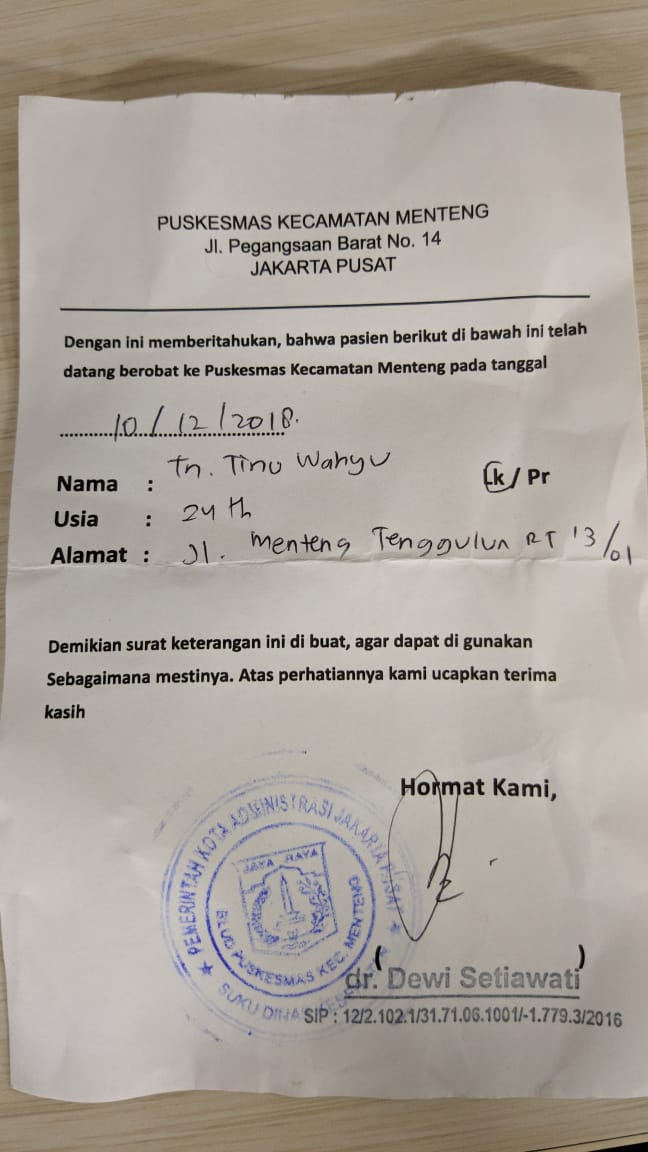 PUSKESMAS KECAMATAN MENTENG
Jl. Pegangsaan Barat No. 14
JAKARTA PUSAT
Dengan ini memberitahukan, bahwa pasien berikut di bawah ini telah
datang berobat ke Puskesmas Kecamatan Menteng pada tanggal
10/12/2018.
Nama : Tn. Tinu Wahyu Lk / Pr
Usia : 24 th
Alamat : Jl. Menteng Tenggulun RT 13/01
Demikian surat keterangan ini di buat, agar dapat di gunakan
Sebagaimana mestinya. Atas perhatiannya kami ucapkan terima
kasih
Hormat Kami,
PEMERINTAH KOTA ADMINISTRASI JAKARTA PUSAT
JAYA RAYA
BLUD PUSKESMAS KEC. MENTENG
SUKU DINAS KESEHATAN
(dr. Dewi Setiawati)
SIP : 12/2.102.1/31.71.06.1001/-1.779.3/2016